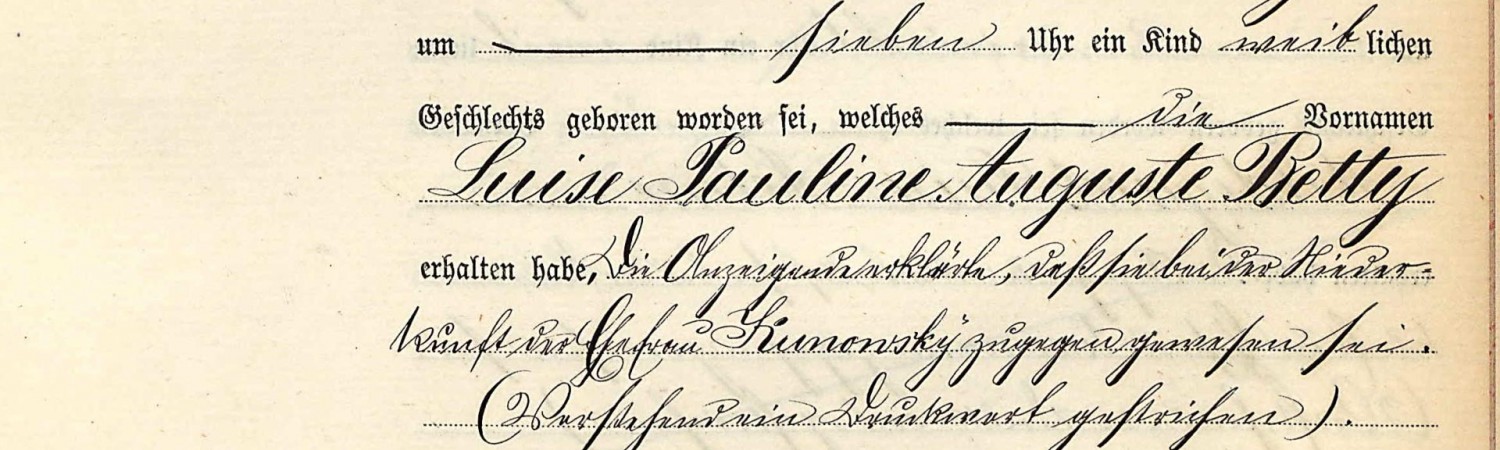 um sieben Uhr ein Kind weiblichen
Geschlechts geboren worden sei, welches die Vornamen
Luise Pauline Auguste Betty
erhalten habe, Die Anzeigende erklärte, daß sie bei der Nieder-
kunft der Ehefrau Kunowsky zugegen gewesen sei.
(Vorstehend ein Druckwort gestrichen).